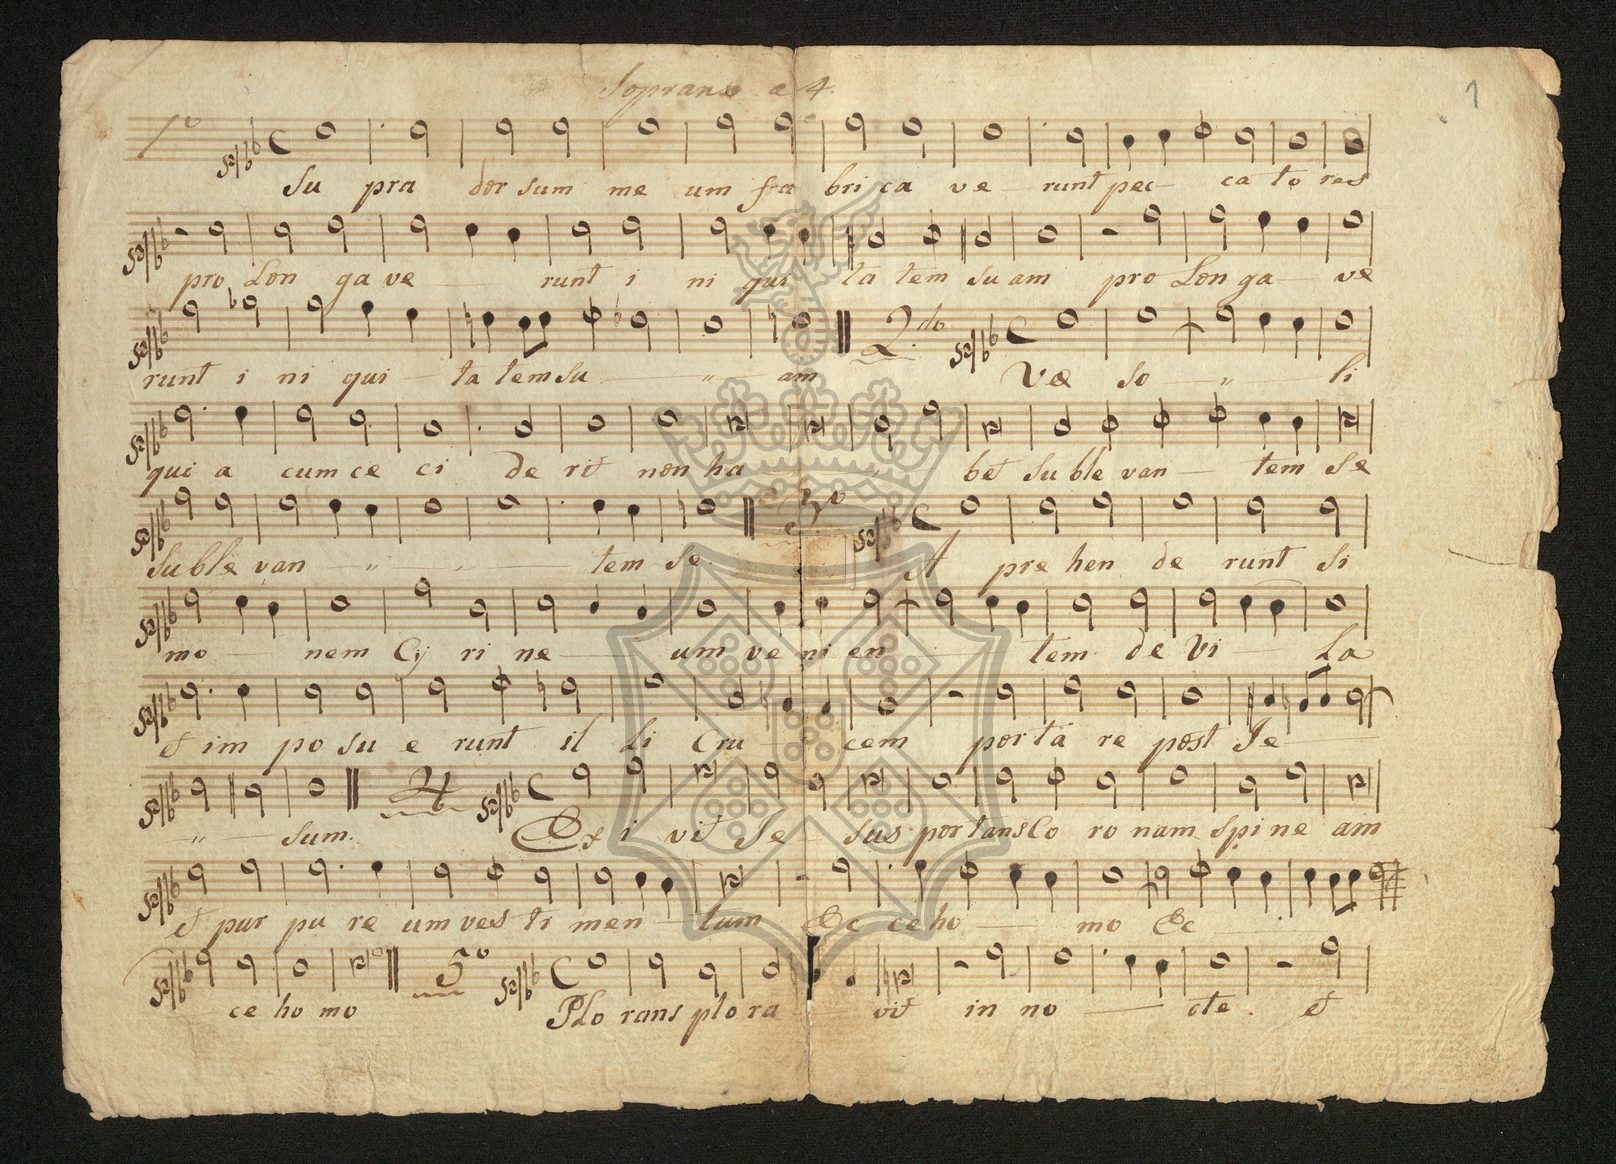 Soprano a 4.
1
1º
Su pra dor sum me um fa bri ca ve runt pec ca to res
pro Lon ga ve runt i ni qui ta tem su am pro Lon ga ve
2.do
runt i ni qui ta tem su " am Væ so " li
qui a cum ce ci de rit non ha bet su ble van tem se
3º
Su ble van " tem se A pre hen de runt Si
mo nem Cy ri ne um ve ni en tem de Vi La
et im po su e runt il li Cru cem por ta re post Je
4
" sum. Ex i vit Je sus por tans Co ro nam spi ne am
et pur pu re um ves ti men tum Ec ce ho mo Ec
5º
ce ho mo PLo rans plo ra vit in no cte. et